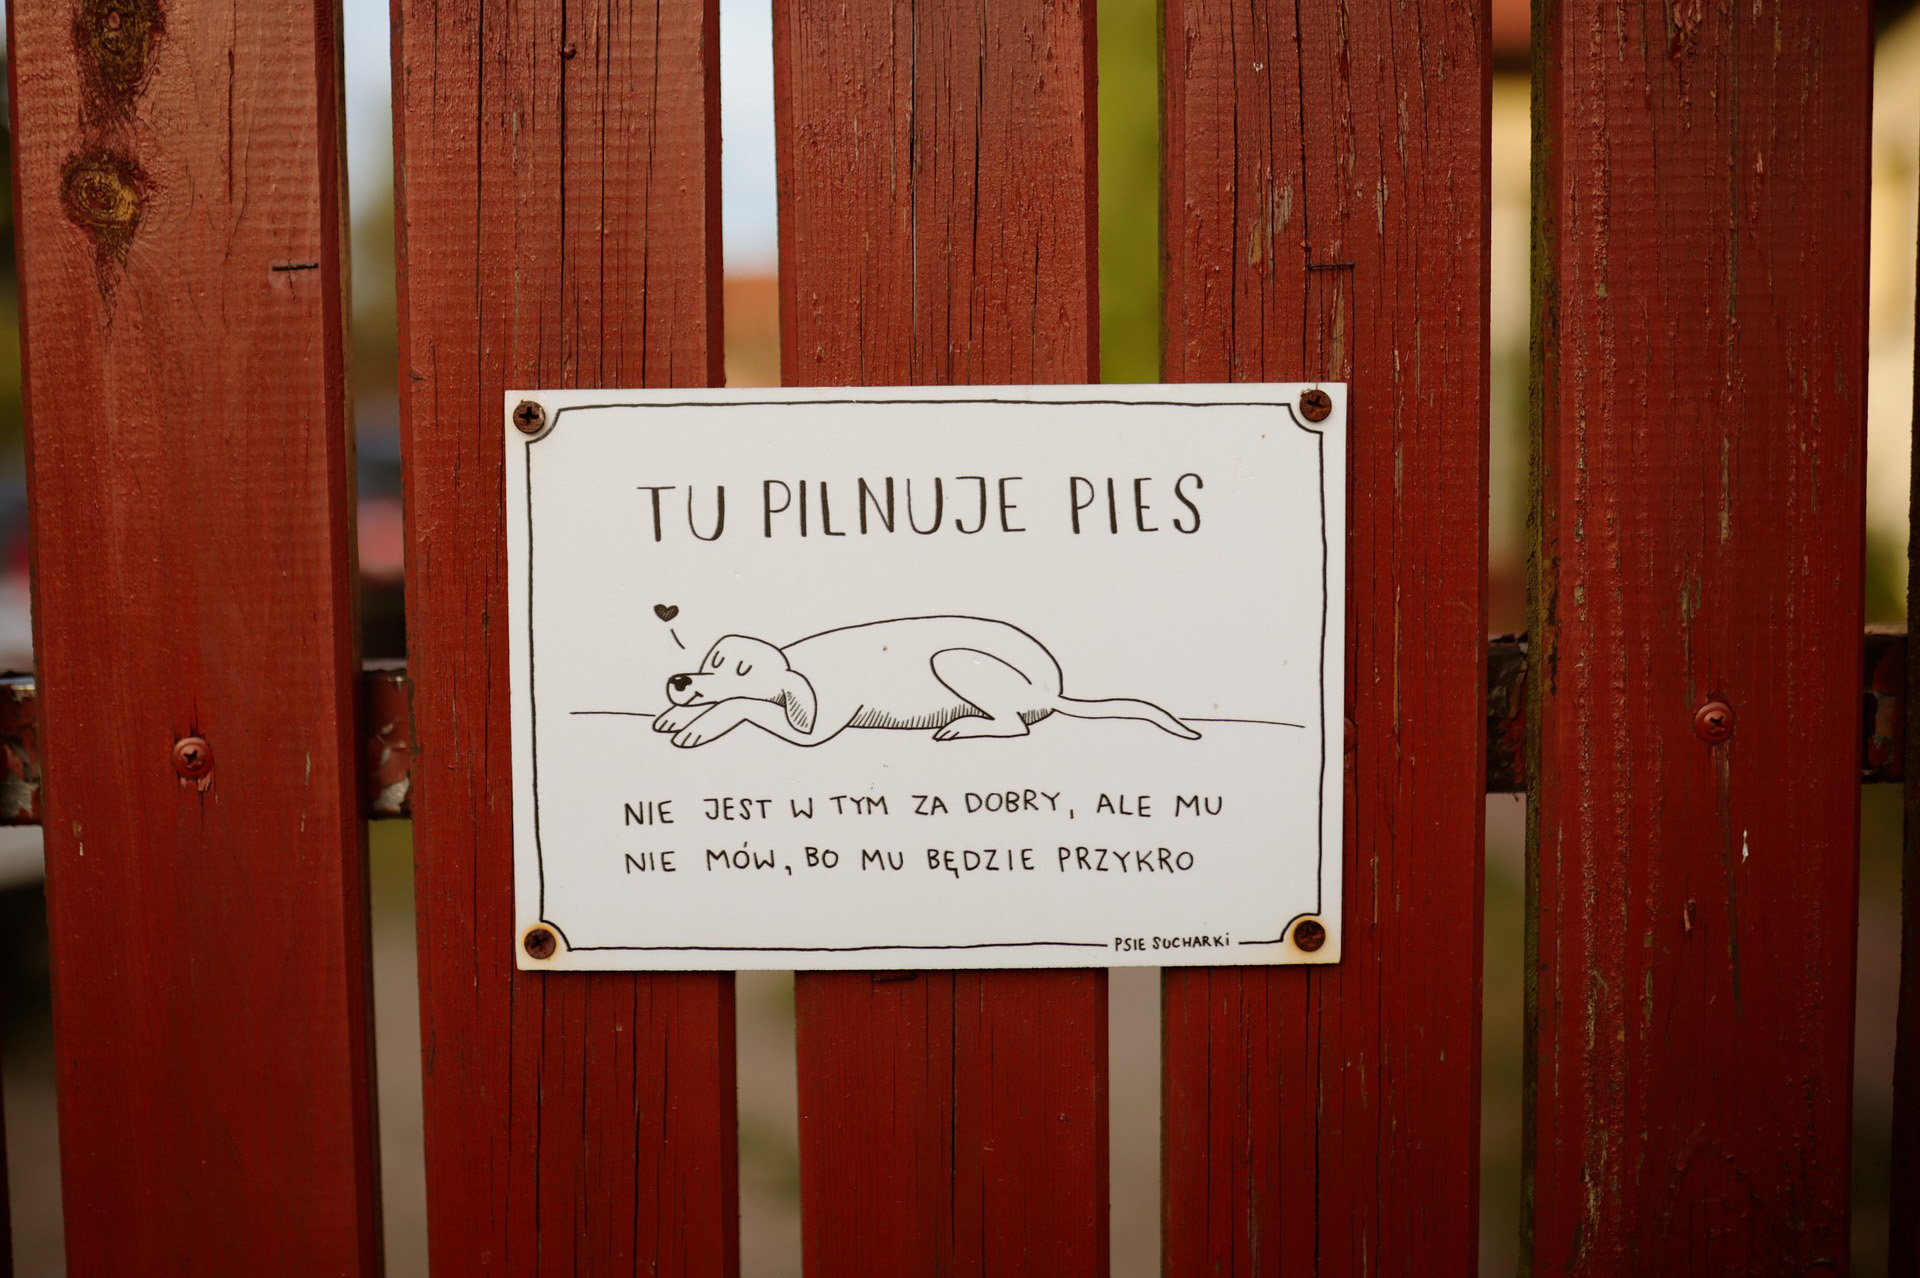 TU PILNUJE PIES
NIE JEST W TYM ZA DOBRY, ALE MU
NIE MÓW, BO MU BĘDZIE PRZYKRO
PSIE SUCHARKi